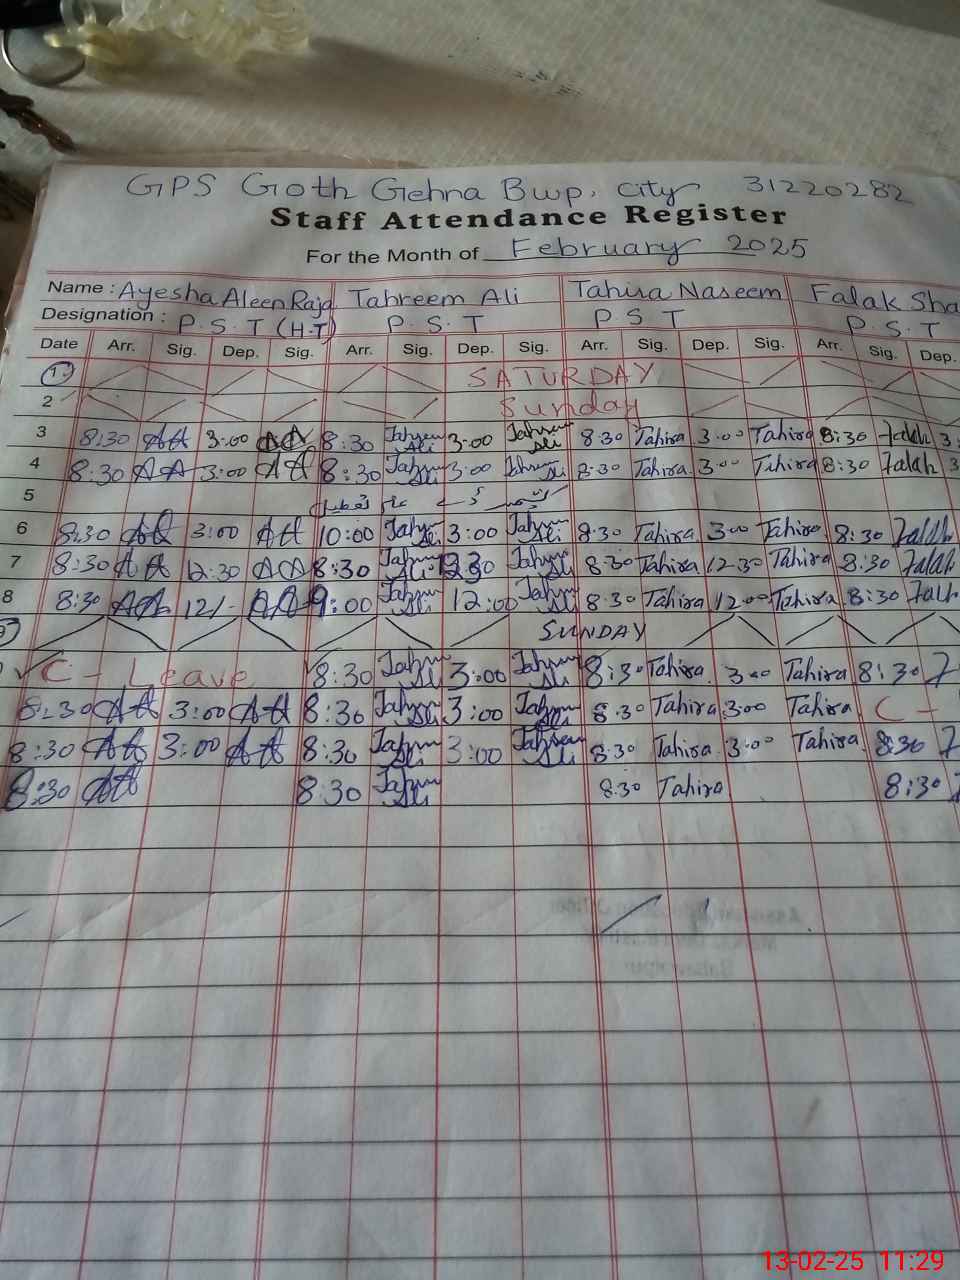 GPS Goth Gehna Bwp, City 31220282
Staff Attendance Register
For the Month of February 2025
Name : Ayesha Aleen Raja Tahreem Ali Tahira Naseem Falak Sha
Designation : P.S.T (H.T) P.S.T P S T P.S.T
Date Arr. Sig. Dep. Sig. Arr. Sig. Dep. Sig. Arr. Sig. Dep. Sig. Arr. Sig. Dep.
1 SATURDAY
2 Sunday
3 8:30 AA 3:00 AA 8:30 Tahreem Ali 3:00 Tahreem Ali 8:30 Tahira 3:00 Tahira 8:30 Falak 3:
4 8:30 AA 3:00 AA 8:30 Tahreem Ali 3:00 Tahreem Ali 8:30 Tahira 3:00 Tahira 8:30 Falak 3
5 عام تعطیل
6 8:30 AA 3:00 AA 10:00 Tahreem Ali 3:00 Tahreem Ali 8:30 Tahira 3:00 Tahira 8:30 Falak
7 8:30 AA 12:30 AA 8:30 Tahreem Ali 12:30 Tahreem Ali 8:30 Tahira 12:30 Tahira 8:30 Falak
8 8:30 AA 12/- AA 9:00 Tahreem Ali 12:00 Tahreem Ali 8:30 Tahira 12:00 Tahira 8:30 Falak
9 SUNDAY
C - Leave 8:30 Tahreem Ali 3:00 Tahreem Ali 8:30 Tahira 3:00 Tahira 8:30 F
8:30 AA 3:00 AA 8:30 Tahreem Ali 3:00 Tahreem Ali 8:30 Tahira 3:00 Tahira C -
8:30 AA 3:00 AA 8:30 Tahreem Ali 3:00 Tahreem Ali 8:30 Tahira 3:00 Tahira 8:30 F
8:30 AA 8:30 Tahreem Ali 8:30 Tahira 8:30
13-02-25 11:29